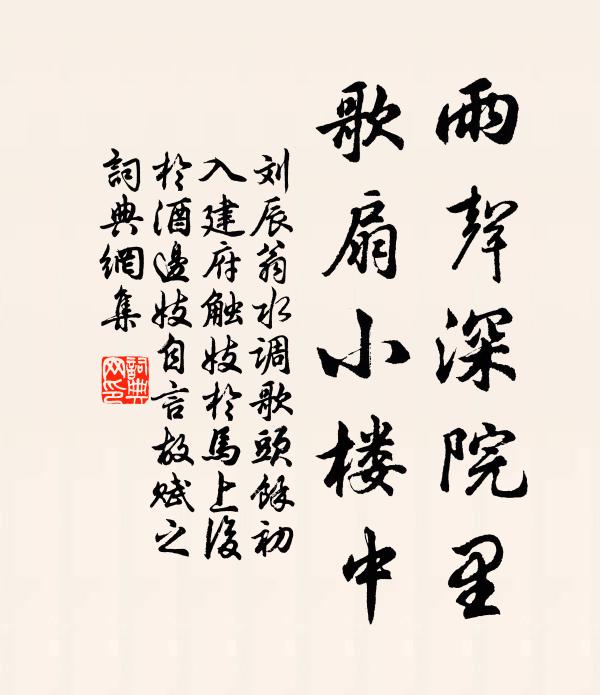 雨聲深院里
歌扇小楼中
刘辰翁水调歌頭餘初
入建府触妓於馬上後
於酒邊妓自言故赋之
詞典網集
詞典网印